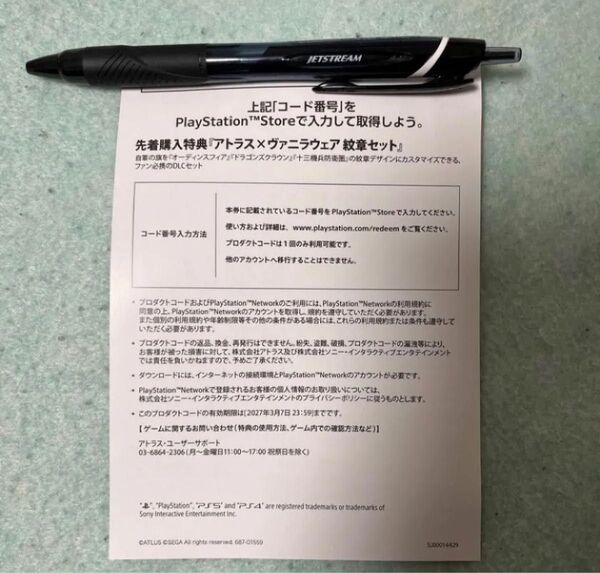 JETSTREAM
上記「コード番号」を
PlayStation™Storeで入力して取得しよう。
先着購入特典『アトラス×ヴァニラウェア 紋章セット』
自軍の旗を『オーディンスフィア』『ドラゴンズクラウン』『十三機兵防衛圏』の紋章デザインにカスタマイズできる、
ファン必携のDLCセット
コード番号入力方法
本券に記載されているコード番号を PlayStation™Store で入力してください。
使い方および詳細は、www.playstation.com/redeem をご覧ください。
プロダクトコードは1回のみ利用可能です。
他のアカウントへ移行することはできません。
• プロダクトコードおよびPlayStation™Networkのご利用には、PlayStation™Networkの利用規約に
同意の上、PlayStation™Networkのアカウントを取得し、規約を遵守していただく必要があります。
また個別の利用規約や年齢制限等その他の条件がある場合には、これらの利用規約または条件も遵守して
いただく必要があります。
• プロダクトコードの返品、換金、再発行はできません。紛失、盗難、破損、プロダクトコードの漏洩等により、
お客様が被った損害に対して、株式会社アトラス及び株式会社ソニー・インタラクティブエンタテインメント
では責任を負いかねますので、予めご了承ください。
• ダウンロードには、インターネットの接続環境とPlayStation™Networkのアカウントが必要です。
• PlayStation™Networkで登録されるお客様の個人情報のお取り扱いについては、
株式会社ソニー・インタラクティブエンタテインメントのプライバシーポリシーに従うものとします。
• このプロダクトコードの有効期限は[2027年3月7日 23:59]までです。
【ゲームに関するお問い合わせ(特典の使用方法、ゲーム内での確認方法など)】
アトラス・ユーザーサポート
03-6864-2306 (月～金曜日11:00～17:00 祝祭日を除く)
"PlayStation", "PS5" and "PS4" are registered trademarks or trademarks of
Sony Interactive Entertainment Inc.
©ATLUS ©SEGA All rights reserved. 687-01559
SJ00014429